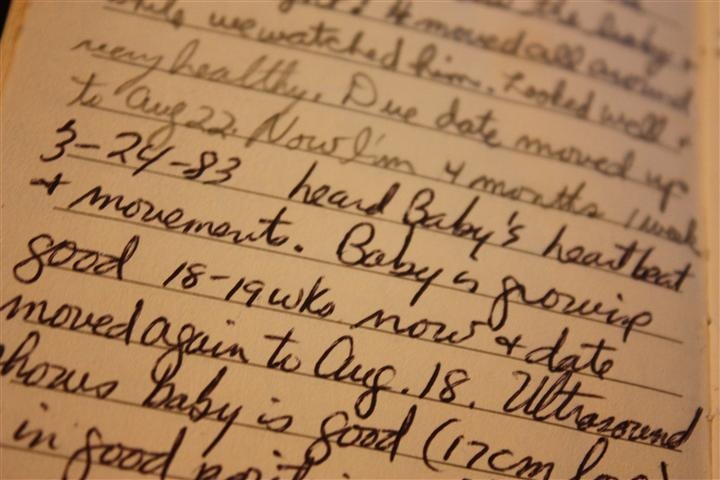 the baby +
4 moved all around
while we watched him. Looked well +
very healthy. Due date moved up
to Aug 22. Now I'm 4 months 1 week
3-24-83 heard Baby's heartbeat
+ movements. Baby is growing
good 18-19 wks now + date
moved again to Aug. 18. Ultrasound
shows baby is good (17cm
in good